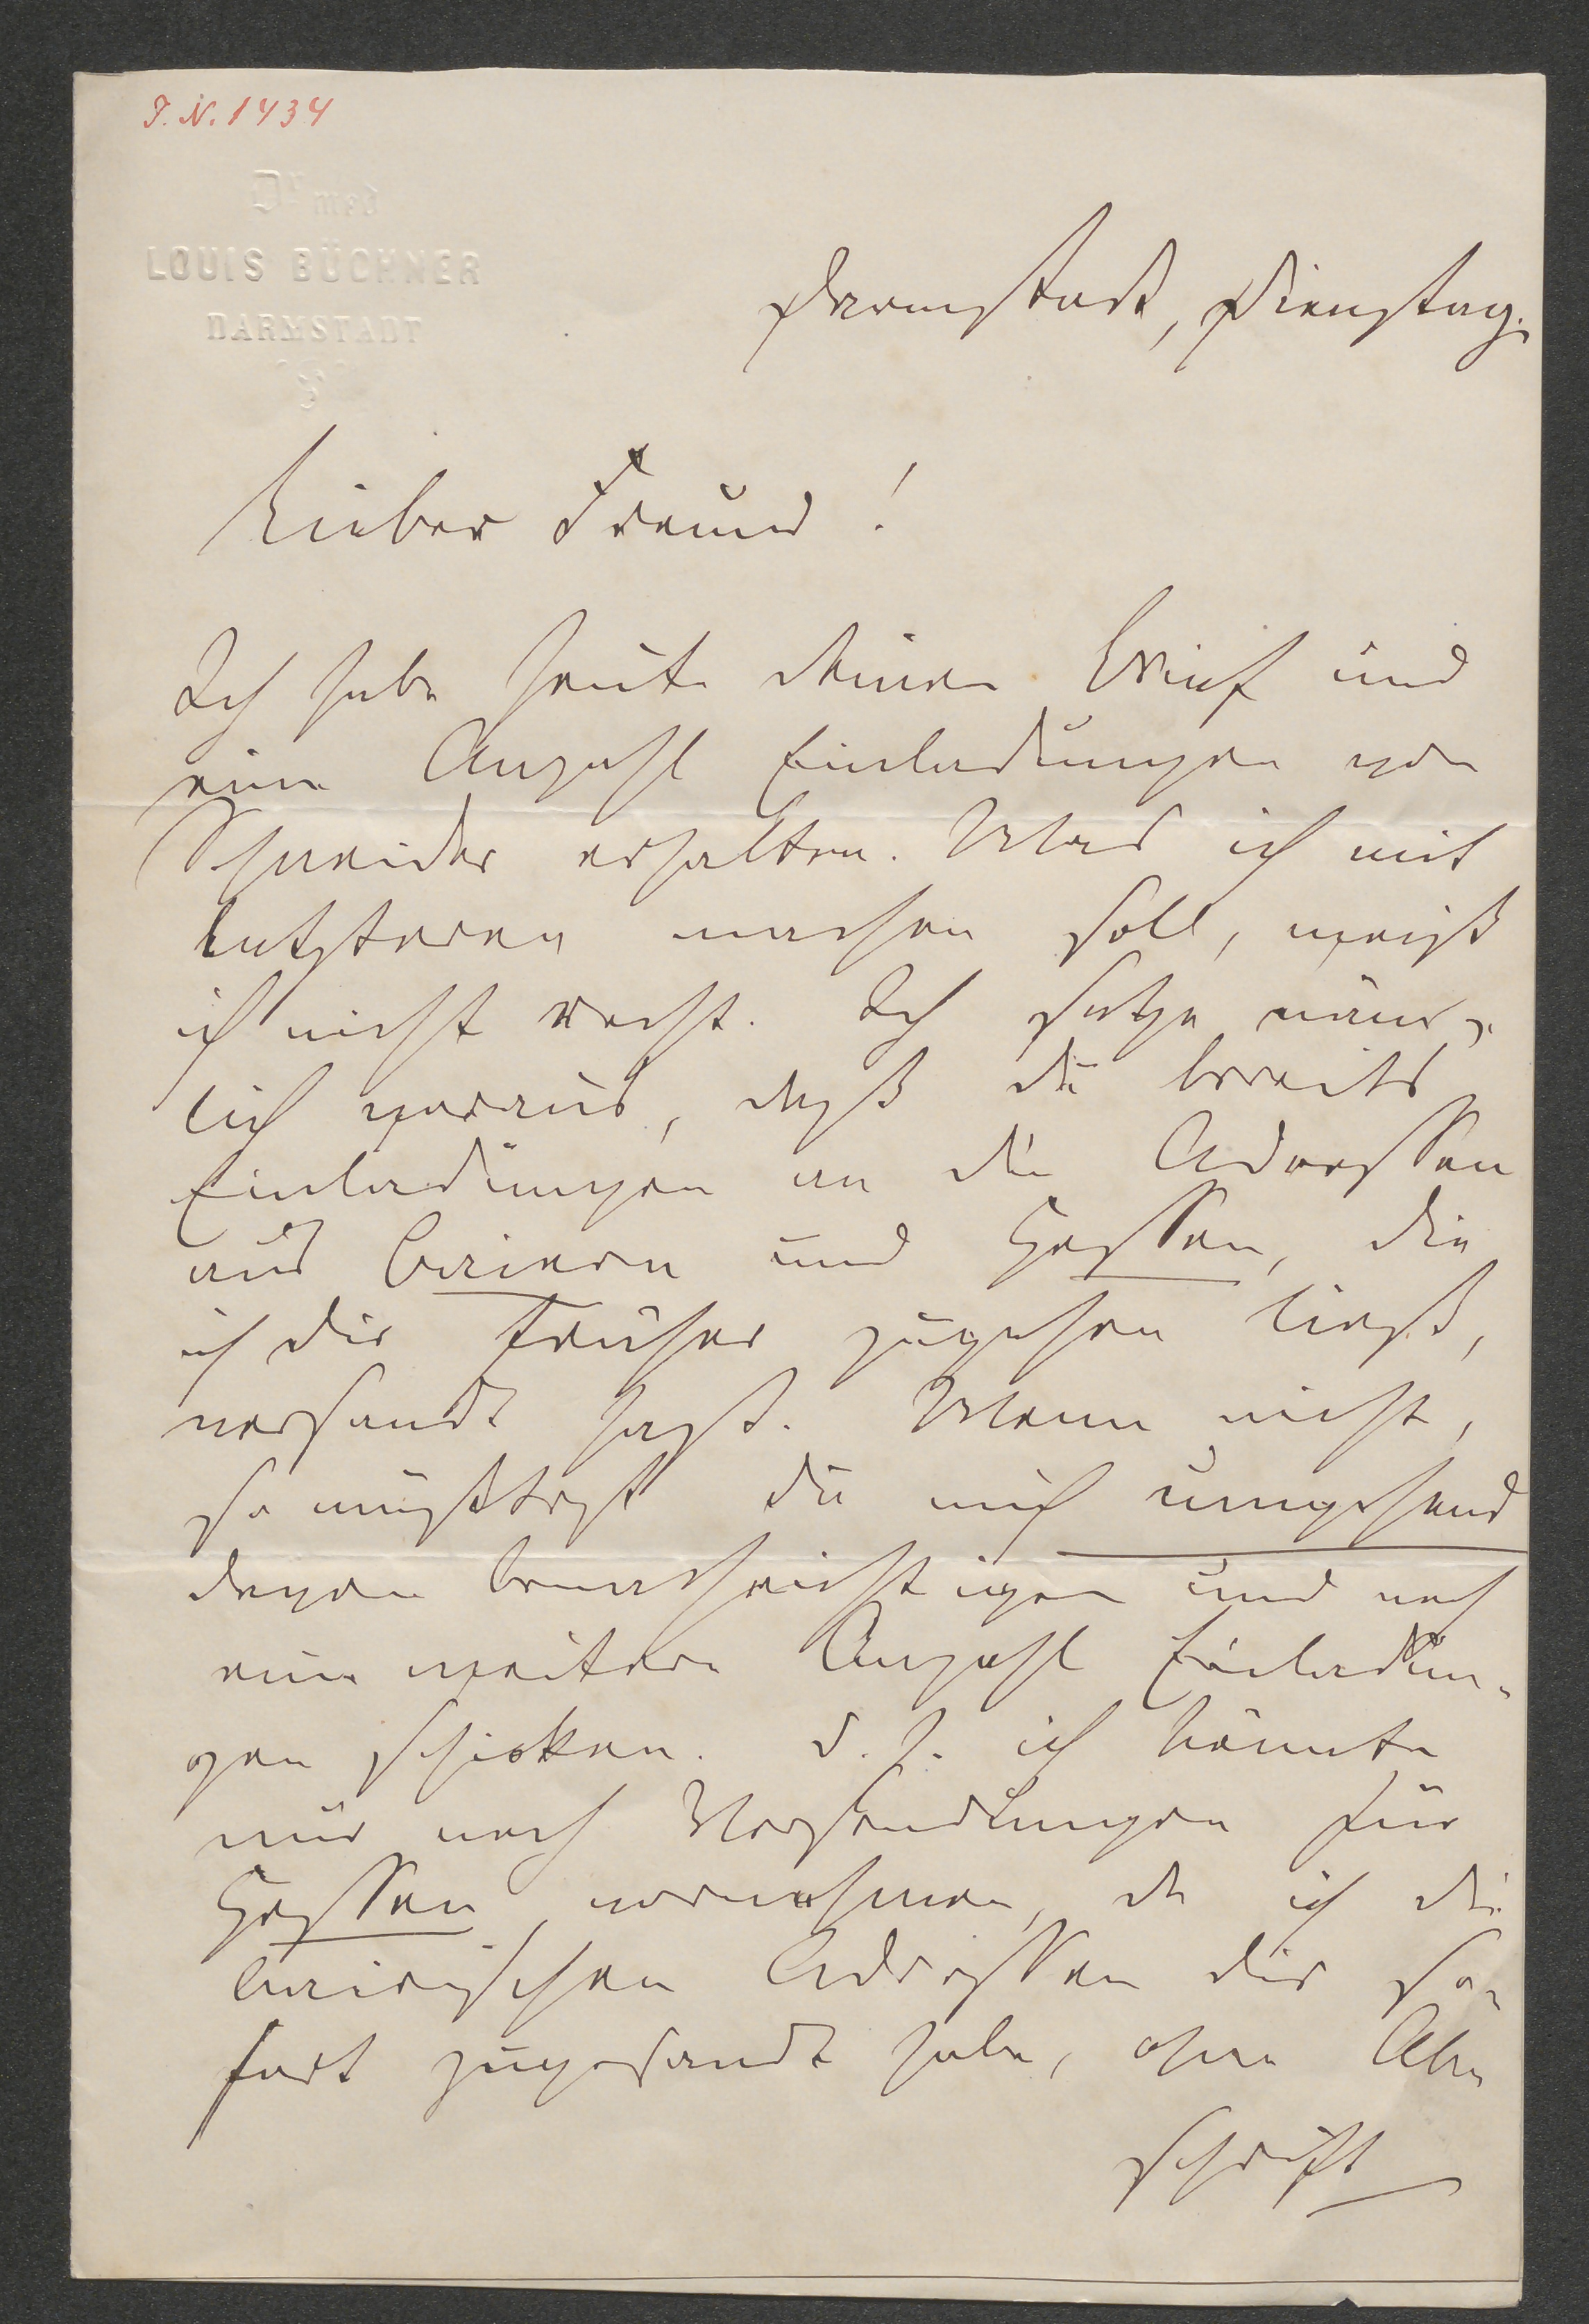 I. N. 1434
Dr med
LOUIS BÜCHNER
DARMSTADT
Darmstadt, Dienstag.
Lieber Freund!
Ich habe heute deinen Brief und
eine Anzahl Einladungen von
Schneider erhalten. Was ich mit
letzteren machen soll, weiß
ich nicht recht. Ich setze näm-
lich voraus, daß du bereits
Einladungen an die Adressen
aus Baiern und Hessen, die
ich dir früher zugehen ließ,
versandt hast. Wenn nicht,
so müßtest du mich umgehend
davon benachrichtigen und noch
eine weitere Anzahl Einladun-
gen schicken. d. h. ich könnte
nur noch Versendungen für
Hessen vornehmen, da ich die
bairischen Adressen dir so-
fort zugesandt habe, ohne Ab-
schrift